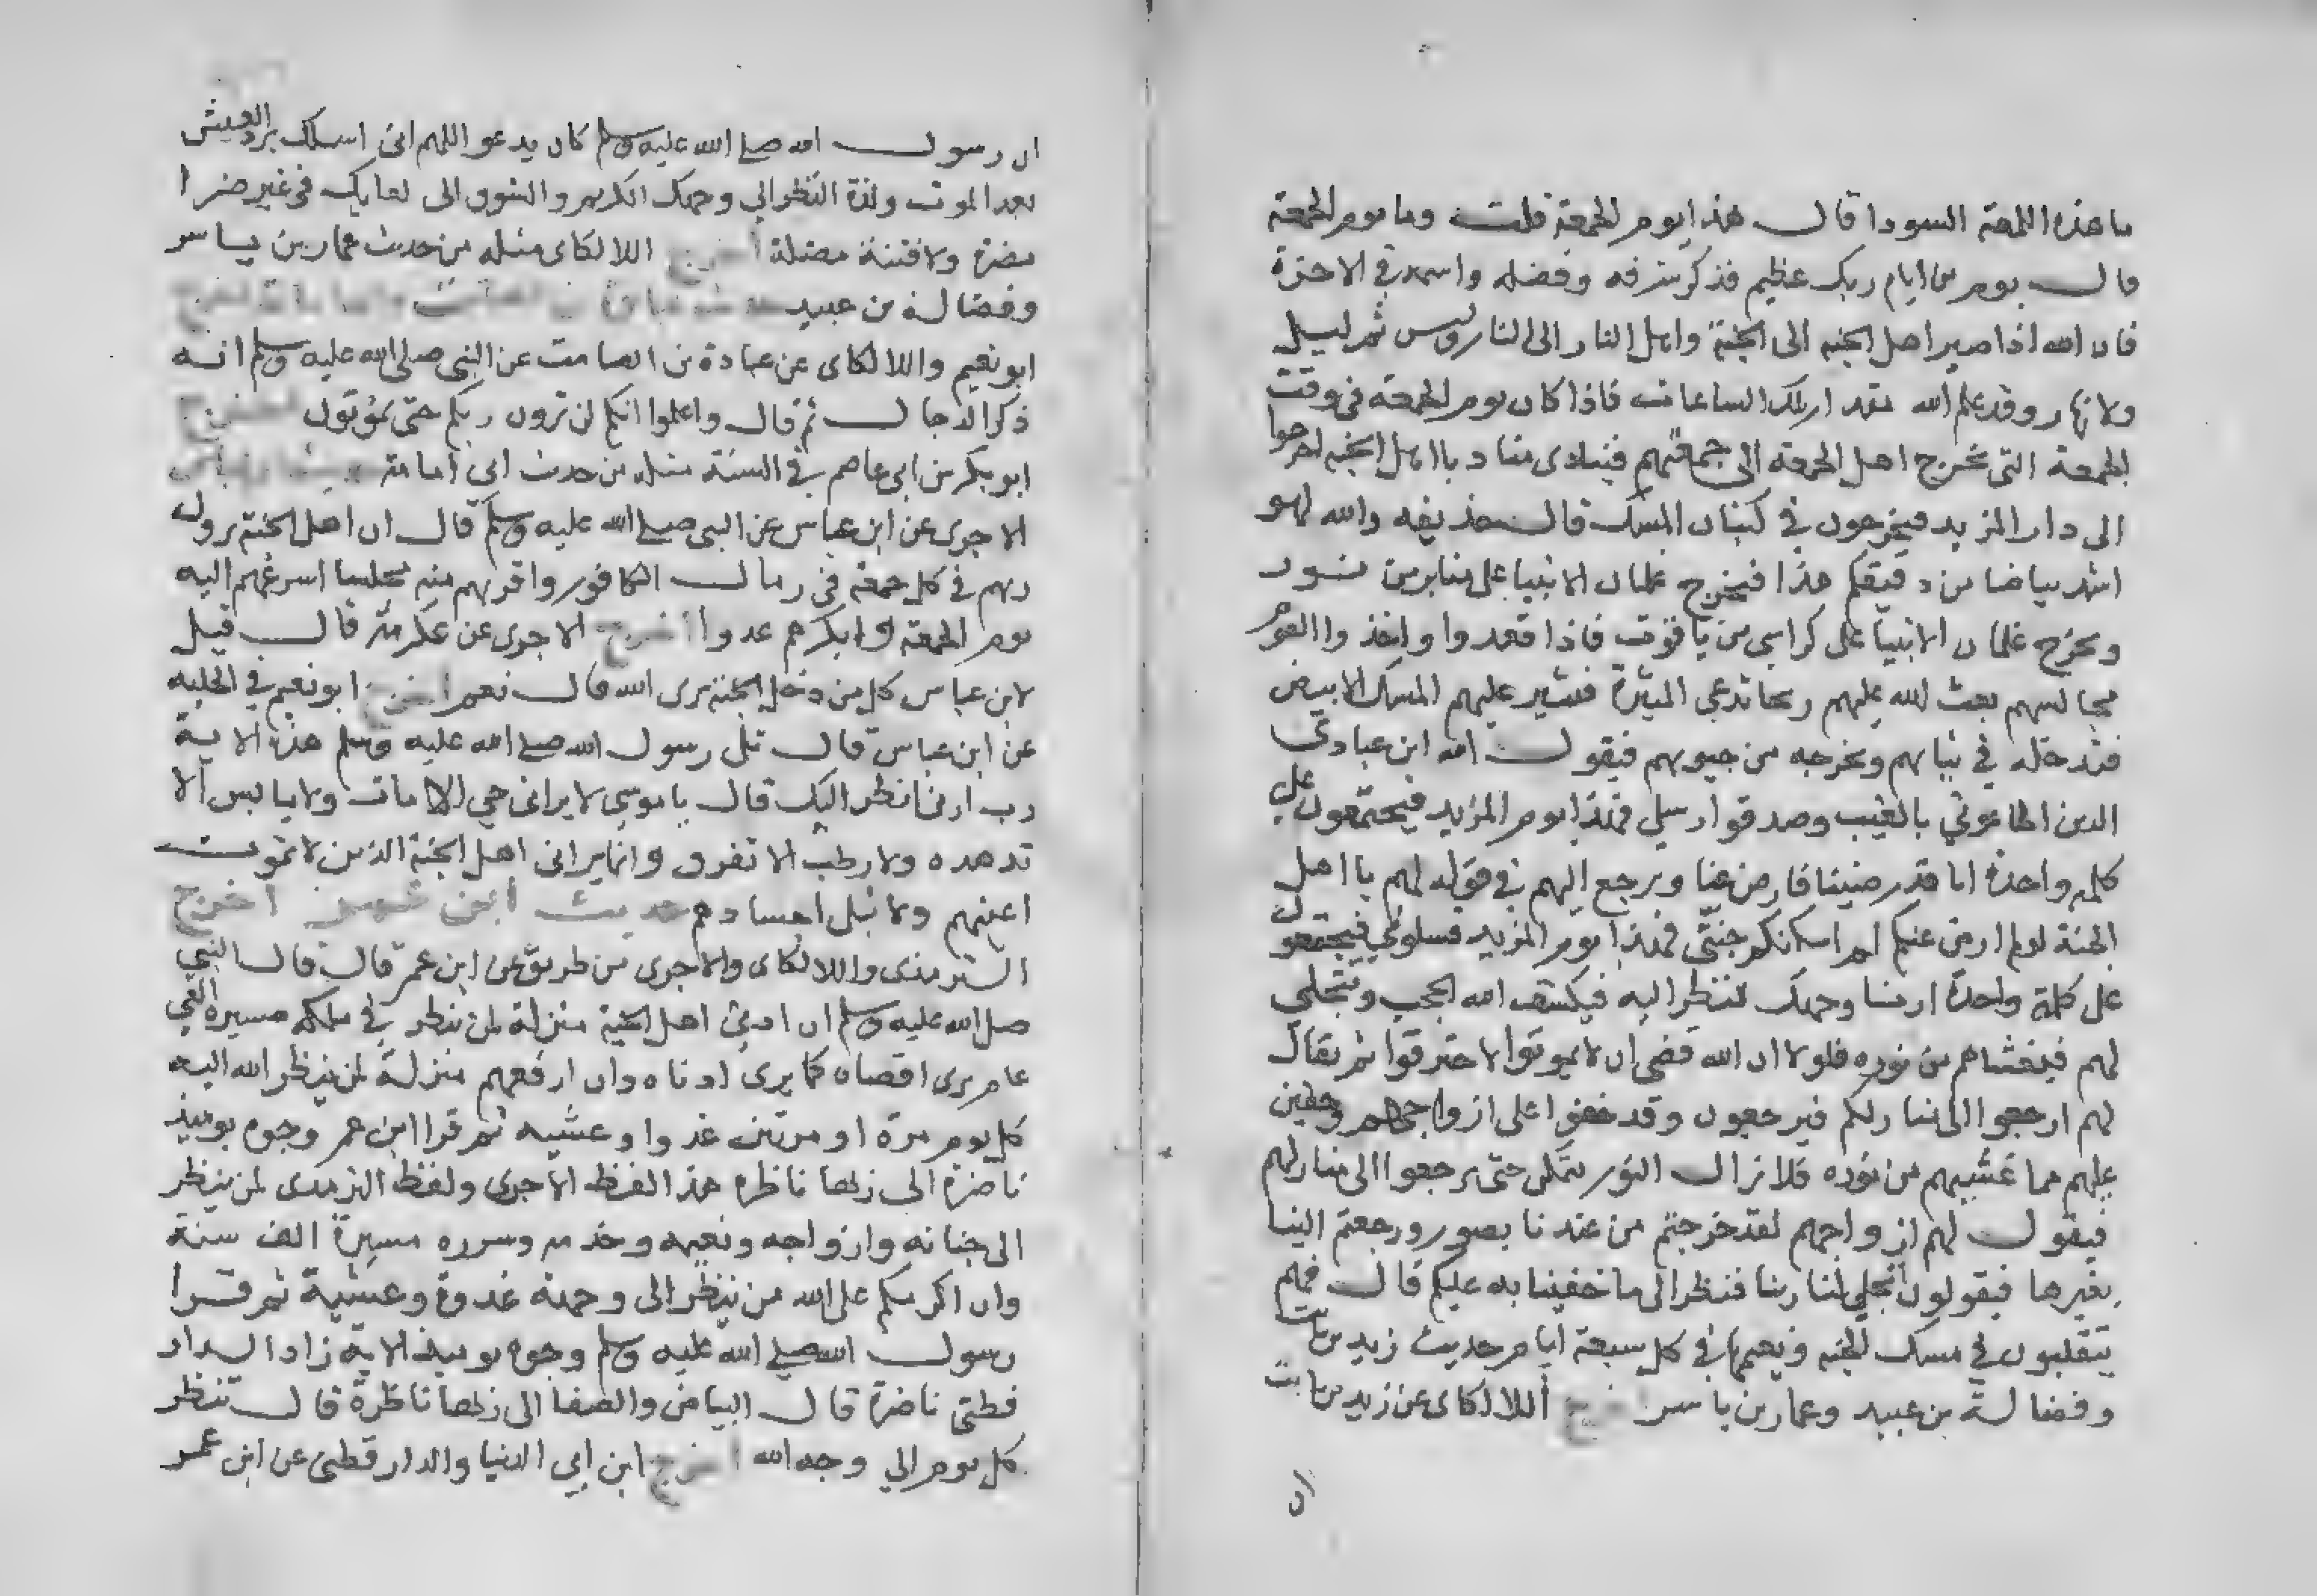 ما هذه اللمعة السودا قال هذا يوم الجمعة قلت وما يوم الجمعة
قال يوم من ايام ربك عظيم فذكر شرفه وفضله واسمه في الاخرة
فان الله اذا صير اهل الجنه الى الجنة واهل النار الى النار وليس ثم ليل
ولا نهار وقد علم الله مقدار تلك الساعات فاذا كان يوم الجمعة في وقت
الجمعة التي يخرج اهل الجمعة الى جمعتهم فينادى مناد يا اهل الجنه اخرجوا
الى دار المزيد فيخرجون في كثبان المسك قال حذيفه والله لهو
اشد بياضا من دقيقكم هذا فيخرج غلمان الانبيا على منابر من نور
ويخرج غلمان الانبيا على كراسي من ياقوت فاذا قعدوا واخذوا القوم
مجالسهم بعث الله عليهم ريحا تدعى المثيرة فتثير عليهم المسك الابيض
فتدخله في ثيابهم وتخرجه من جيوبهم فيقول الله اين عبادي
الذين اطاعوني بالغيب وصدقوا رسلي فهذا يوم المزيد فيجتمعون على
كلمة واحدة انا قد رضينا فارض عنا ويرجع اليهم في قوله لهم يا اهل
الجنة لو لم ارض عنكم لم اسكنكم جنتي فهذا يوم المزيد فسلوني فيجتمعون
على كلمة واحدة ارنا وجهك ننظر اليه فيكشف الله الحجب ويتجلى
لهم فيغشاهم من نوره فلولا ان الله قضى ان لا يموتوا لاحترقوا ثم يقال
لهم ارجعوا الى منازلكم فيرجعون وقد خفوا على ازواجهم وخفين
عليهم مما غشيهم من نوره فلا يزال النور يتمكن حتى يرجعوا الى منازلهم
فيقول لهم ازواجهم لقد خرجتم من عندنا بصور ورجعتم الينا
بغيرها فيقولون تجلى لنا ربنا فنظرنا الى ما خفينا به عليكم قال فهم
يتقلبون في مسك الجنه ونعيمها في كل سبعة ايام حديث زيد بن ثابت
وفضالة بن عبيد وعمار بن ياسر اخرج اللالكاى عن زيد بن ثابت
ان
ان رسول الله صلى الله عليه وسلم كان يدعو اللهم انى اسلك برد العيش
بعد الموت ولذة النظر الي وجهك الكريم والشوق الى لقايك في غير ضرا
مضرة ولا فتنة مضلة اخرج اللالكاى مثله من حديث عمار بن ياسر
وفضالة بن عبيد حديث عبادة بن الصامت
ابو نعيم واللالكاى عن عبادة بن الصامت عن النبي صلى الله عليه وسلم انه
ذكر الدجال ثم قال واعلموا انكم لن ترون ربكم حتى تموتون اخرج
ابو بكر بن ابى عاصم في السنة مثله من حديث ابي امامة حديث ابن عباس
الاجرى عن ابن عباس عن النبي صلى الله عليه وسلم قال ان اهل الجنة يرون
ربهم في كل جمعة في رمال الكافور واقربهم منه مجلسا اسرعهم اليه
يوم الجمعة وابكرهم غدوا اخرج الاجرى عن عكرمة قال قيل
لابن عباس كل من دخل الجنة يرى الله قال نعم اخرج ابو نعيم في الحليه
عن ابن عباس قال تلى رسول الله صلى الله عليه وسلم هذه الاية
رب ارنى انظر اليك قال يا موسى لا يرانى حي الا مات ولا يابس الا
تدهده ولا رطب الا تفرق وانما يرانى اهل الجنة الذين لا تموت
اعينهم ولا تبلى اجسادهم حديث ابن عمر اخرج
الترمذى واللالكاى والاجرى من طريق عن ابن عمر قال قال النبي
صلى الله عليه وسلم ان ادنى اهل الجنة منزلة لمن ينظر في ملكه مسيرة الفي
عام يرى اقصاه كما يرى ادناه وان ارفعهم منزلة لمن ينظر الله اليه
كل يوم مرة او مرتين غدوا وعشيه ثم قرا ابن عمر وجوه يوميذ
ناضرة الى ربها ناظره هذا لفظ الاجرى ولفظ الترمذى لمن ينظر
الى جنانه وازواجه ونعيمه وخدمه وسرره مسيرة الف سنة
وان اكرمكم على الله من ينظر الى وجهه غدوة وعشية ثم قرا
رسول الله صلى الله عليه وسلم وجوه يوميذ الاية زاد الدار
قطنى ناضرة قال البياض والصفا الى ربها ناظرة قال تنظر
كل يوم الي وجه الله اخرج ابن ابي الدنيا والدارقطنى عن ابن عمر